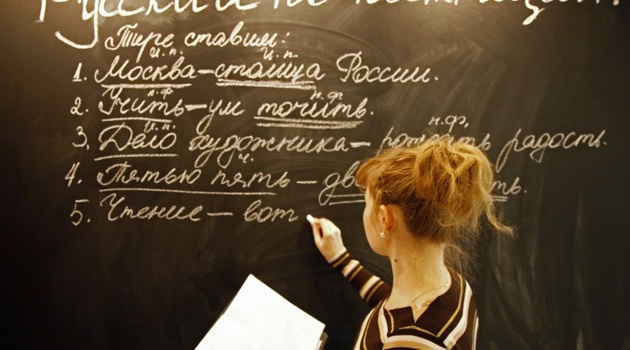 Русский по
Тире ставим:
и.п. и.п.
1. Москва – столица России.
н.ф н.ф.
2. Учить – ум точить.
и.п. н.ф.
3. Дело художника – рождать радость.
ч.
4. Пятью пять –
5. Чтение – вот